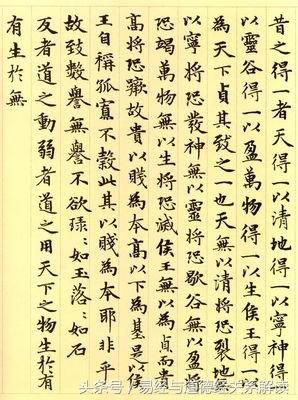 昔之得一者天得一以寧神得一
以靈谷得一以盈萬物得一以生侯王得一以
為天下貞其致之一也天無以清將恐裂地無
以寧將恐發神無以靈將恐歇谷無以盈將
恐竭萬物無以生將恐滅侯王無以為貞而貴
高將恐蹶故貴以賤為本高以下為基是以侯
王自稱孤寡不穀此其以賤為本耶非乎
故致數譽無譽不欲琭〻如玉落〻如石
反者道之動弱者道之用天下之物生於有
有生於無
头条号 / 易经与道德经关系解读